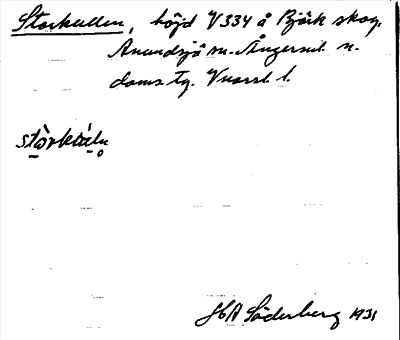 Storkullen, höjd V 334 å Björk skog,
Anundsjö sn. Ångerml. n.
doms. tg. Vnorrl. l.
H A Söderberg 1931